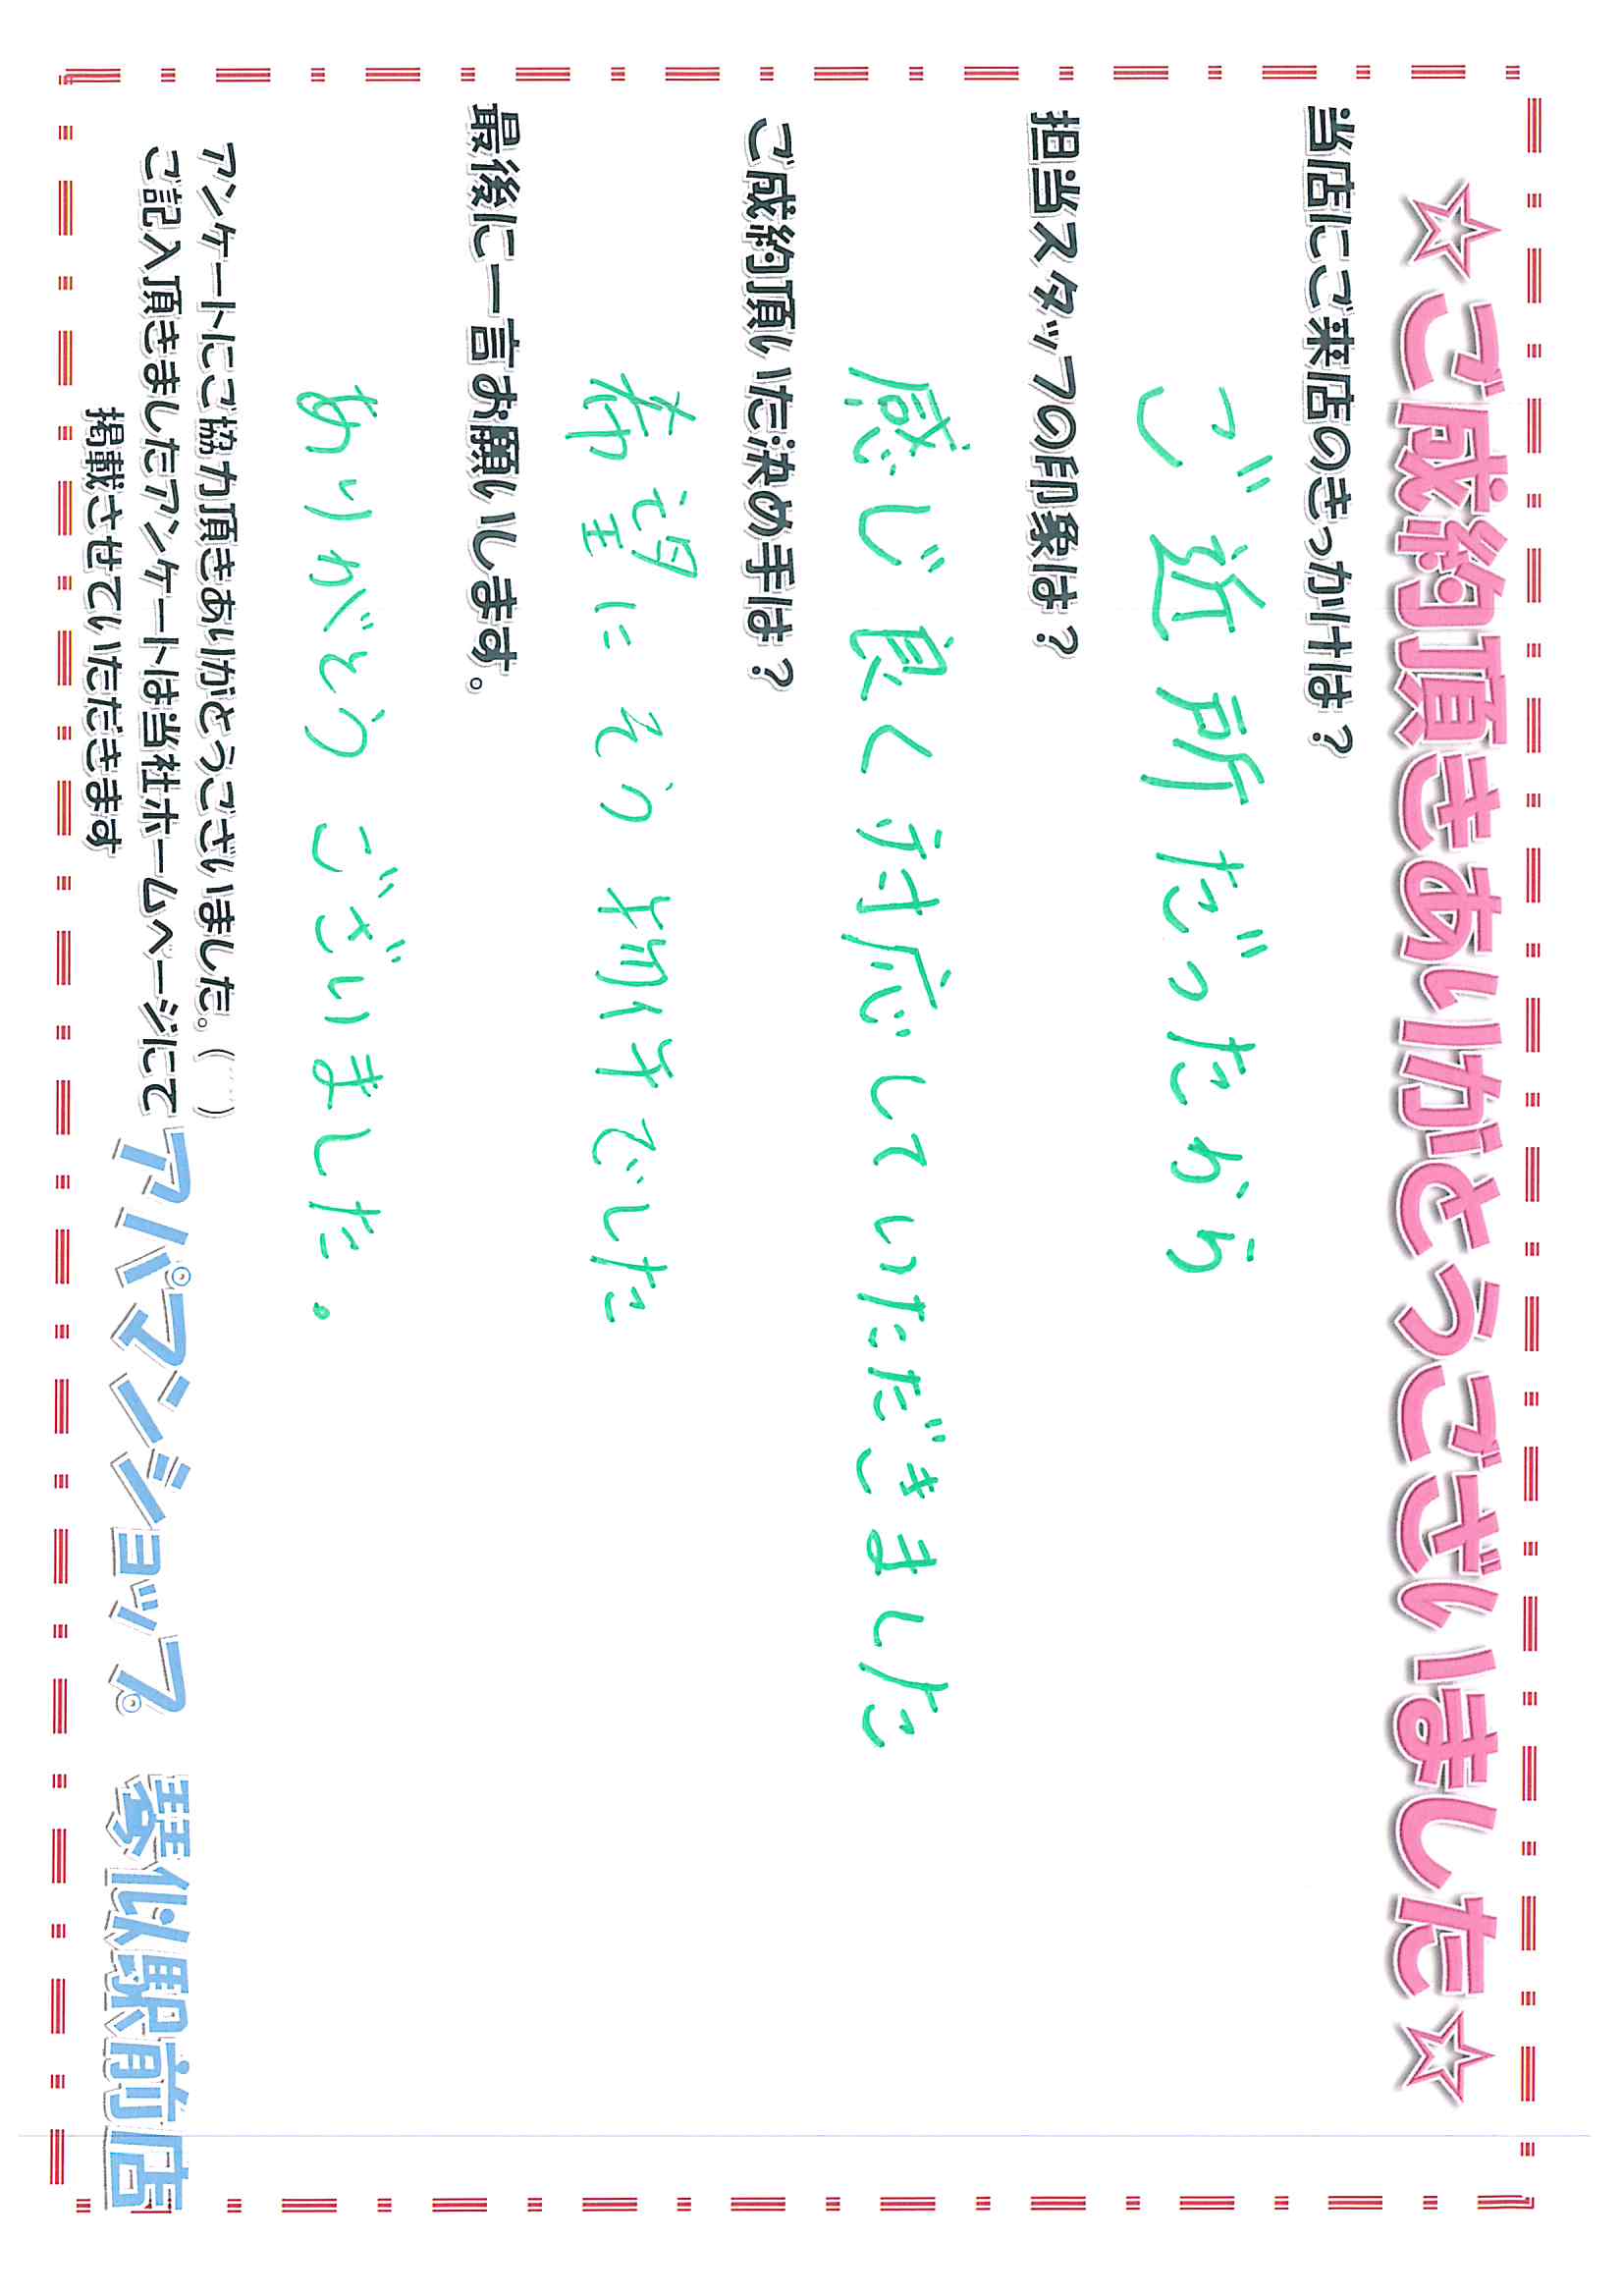 ☆ご成約頂きありがとうございました☆
当店にご来店のきっかけは？
ご近所だったから
担当スタッフの印象は？
感じ良く対応していただきました
ご成約頂いた決め手は？
希望にそう物件でした
最後に一言お願いします。
ありがとうございました。
アンケートにご協力頂きありがとうございました。(^^)
ご記入頂きましたアンケートは当社ホームページにて
掲載させていただきます
アパマンショップ 琴似駅前店